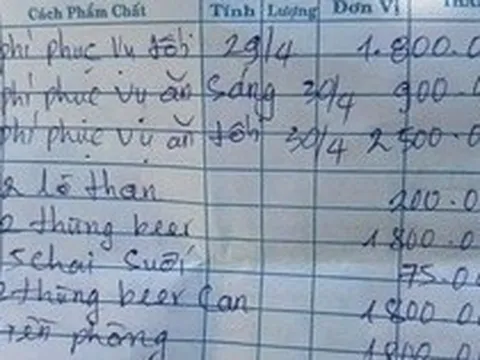 Cách Phẩm Chất Tính Lượng Đơn Vị
phí phục vụ tối 29/4 1.800.0
phí phục vụ ăn sáng 30/4 900.0
phí phục vụ ăn tối 30/4 2 500.0
2 lò than 200.0
thùng beer 1800.0
5 chai suối 75.00
thùng beer Can 1800.0
tiền phòng